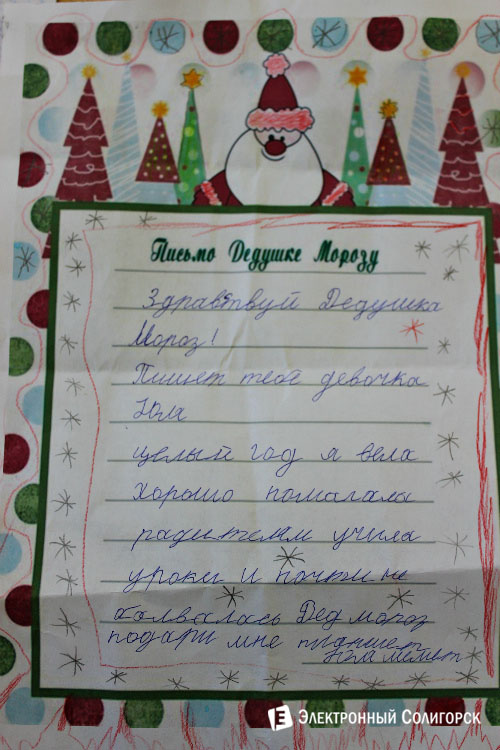 Письмо Дедушке Морозу
Здравствуй Дедушка
Мороз!
Пишет тебе девочка
Юля
целый год я вела
хорошо помагала
радителям учила
уроки и почти не
балвалась Дед мороз
подари мне планшет
Электронный Солигорск